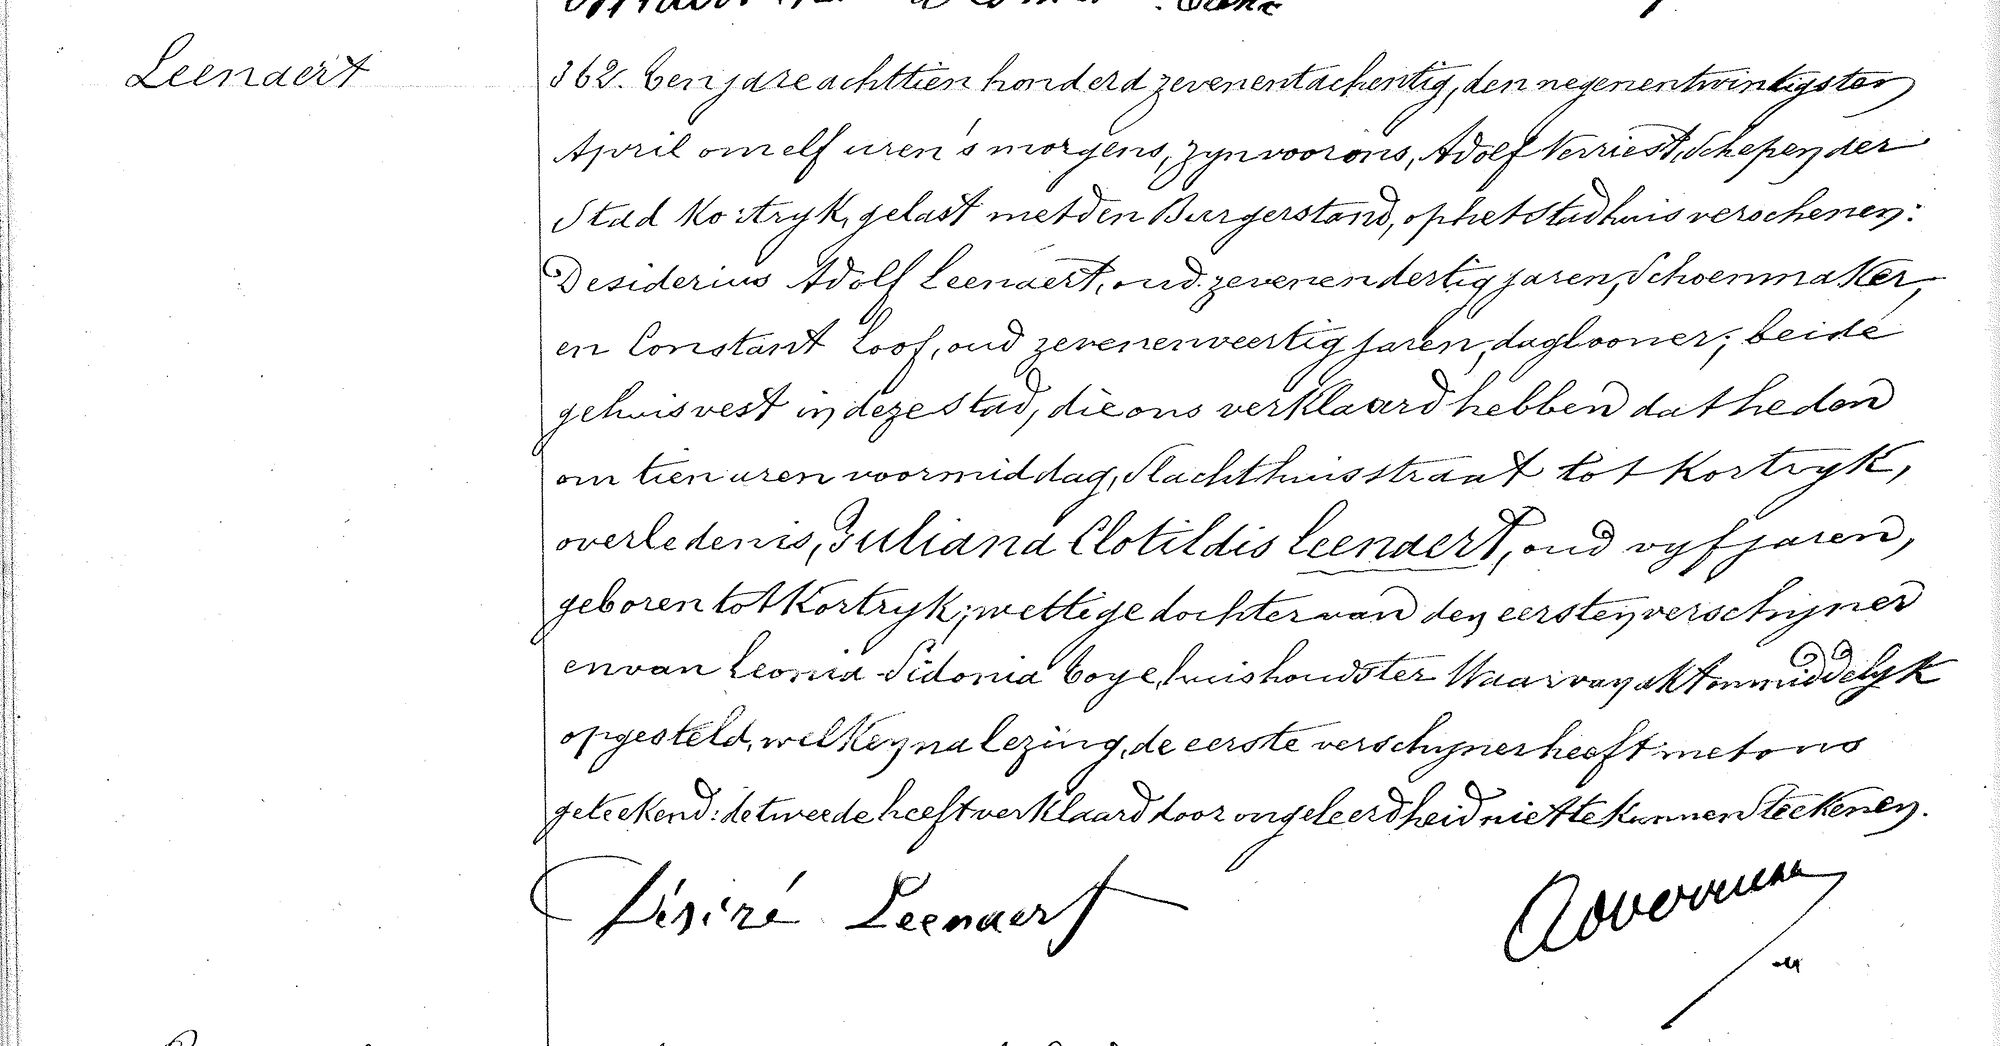 Leenaert
362. Ten jare achttien honderd zevenentachentig, den negenentwintigsten
April om elf uren 's morgens, zyn voor ons, Adolf Verriest, Schepen der
Stad Kortryk, gelast met den Burgerstand, op het Stadhuis verschenen:
Desiderius Adolf Leenaert, oud zevenendertig jaren, Schoenmaker,
en Constant Loof, oud zevenenveertig jaren, daglooner; beide
gehuisvest in deze Stad, die ons verklaard hebben dat heden
om tien uren voormiddag, Slachthuisstraat tot Kortryk,
overleden is, Juliana Clotildis Leenaert, oud vyf jaren,
geboren tot Kortryk; wettige dochter van den eersten verschyner
en van Leonia Sidonia Coye, huishoudster Waarvan akt onmiddelyk
opgesteld, welken na lezing, de eerste verschyner heeft met ons
geteekend: de tweede heeft verklaard door ongeleerdheid niet te kunnen teekenen.
Désiré Leenaert